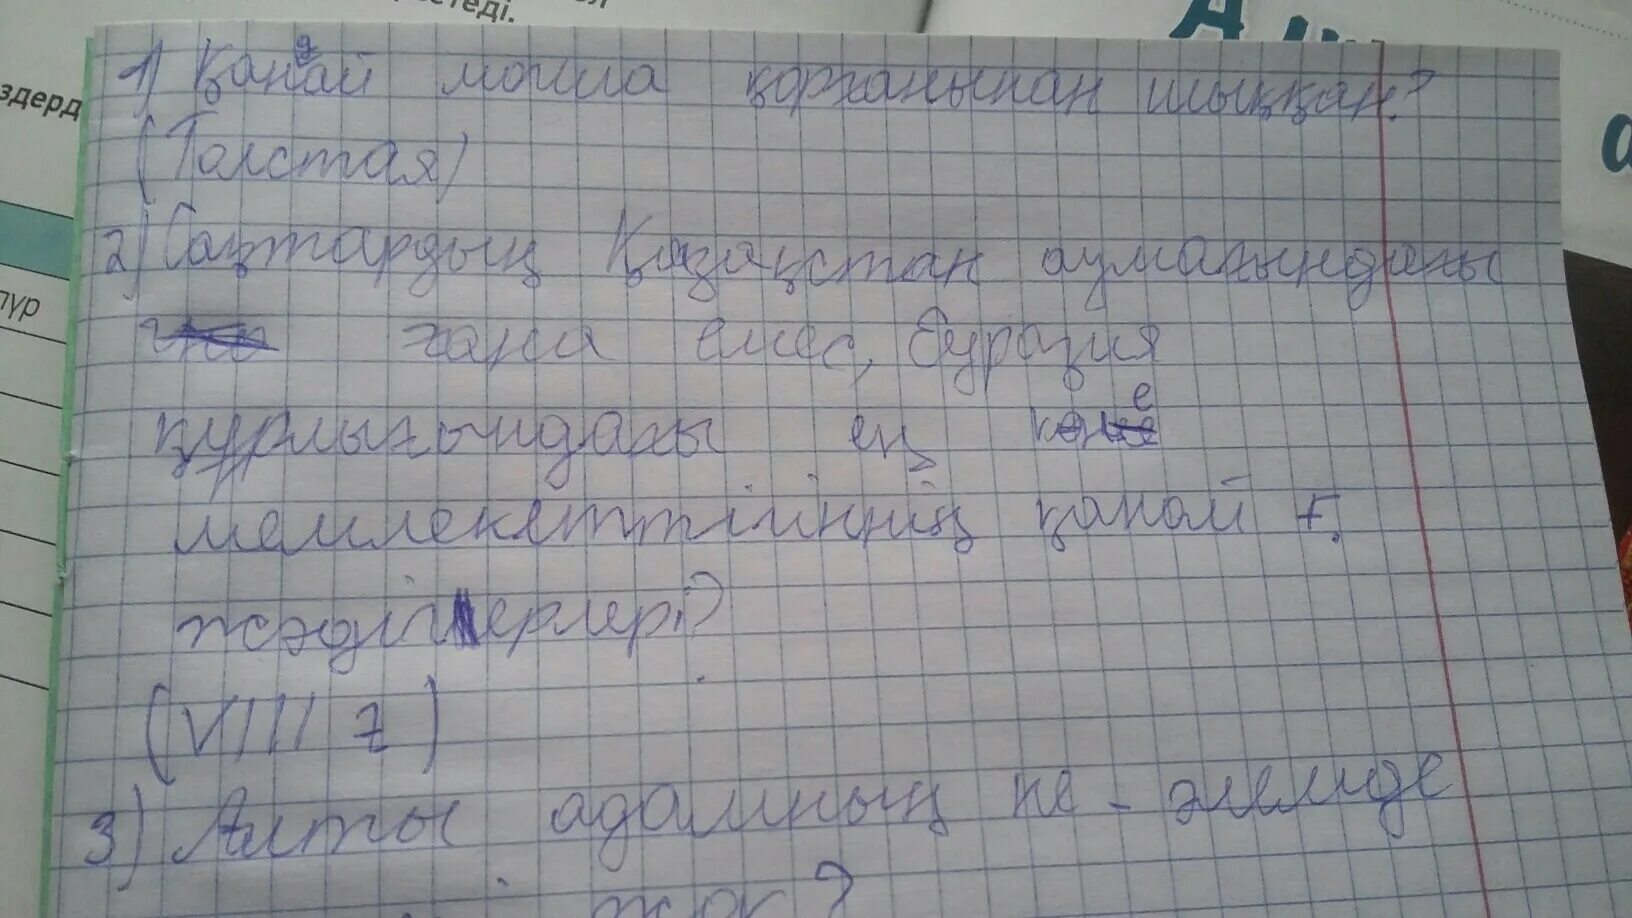 стеді.
здерд
пур
1) Қандай молша қорғанынан шыққан?
(Толстая)
2) Сақтардың Қазақстан аумағындағы
ғана емес, Еуразия
құрлығындағы ең көне
мемлекеттігіннің қанай ғ.
жәдігерлері?
(VIII ғ)
3) Алты адамның не - әлемде
жоқ?